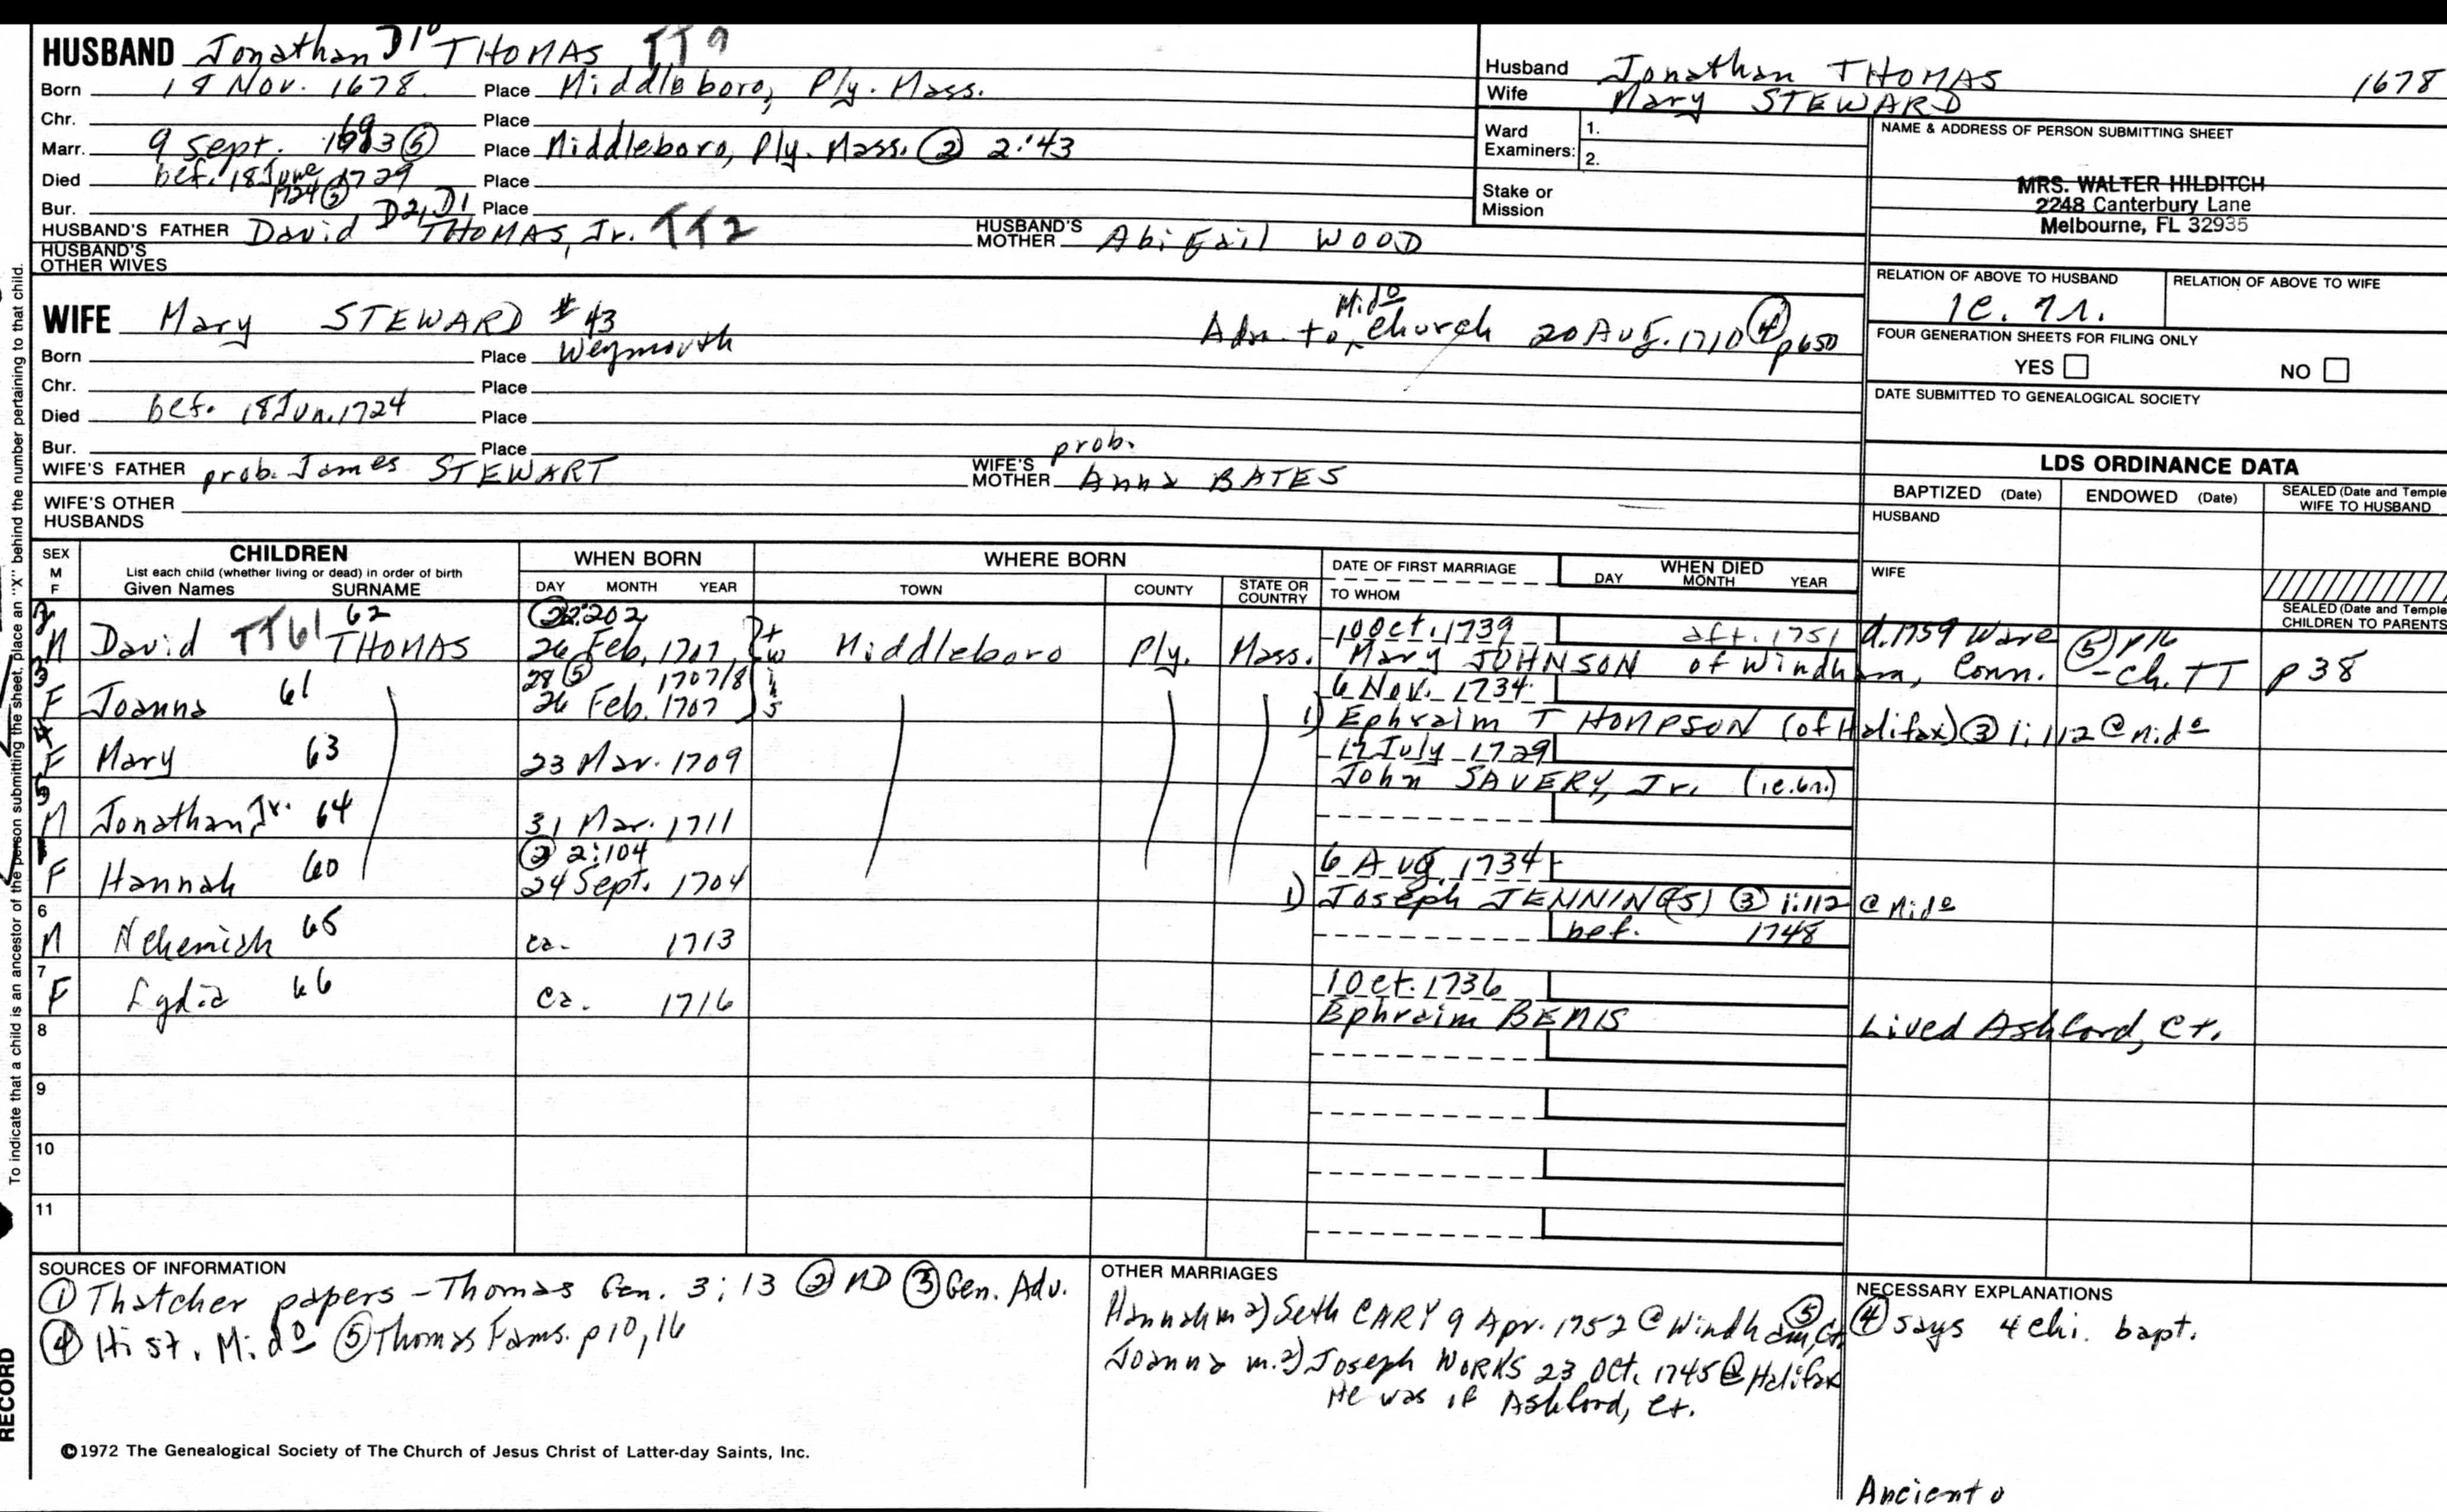 HUSBAND Jonathan D10 THOMAS TT9
Born 18 Nov. 1678. Place Middleboro, Ply. Mass.
Chr. Place
Marr. 9 Sept. ⑤ Place Middleboro, Ply. Mass. ② 2:43
Died bef. 18 June 1729 Place
1724 ⑤
Bur. Place
HUSBAND'S FATHER David D2, D1 THOMAS, Jr. TT2 HUSBAND'S MOTHER Abigail WOOD
HUSBAND'S OTHER WIVES
Husband Jonathan THOMAS 1678
Wife Mary STEWARD
Ward Examiners: 1.
2.
Stake or Mission
NAME & ADDRESS OF PERSON SUBMITTING SHEET
MRS. WALTER HILDITCH
2248 Canterbury Lane
Melbourne, FL 32935
RELATION OF ABOVE TO HUSBAND RELATION OF ABOVE TO WIFE
FOUR GENERATION SHEETS FOR FILING ONLY
YES NO
DATE SUBMITTED TO GENEALOGICAL SOCIETY
WIFE Mary STEWARD #43
Adm. to Mido Church 20 Aug. 1710 ④ p650
Born Place Weymouth
Chr. Place
Died bef. 18 Jun. 1724 Place
Bur. Place
WIFE'S FATHER prob. James STEWART WIFE'S MOTHER prob. Anna BATES
WIFE'S OTHER HUSBANDS
LDS ORDINANCE DATA
BAPTIZED (Date) ENDOWED (Date) SEALED (Date and Temple) WIFE TO HUSBAND
HUSBAND
WIFE
SEALED (Date and Temple) CHILDREN TO PARENTS
SEX M F CHILDREN List each child (whether living or dead) in order of birth Given Names SURNAME
WHEN BORN DAY MONTH YEAR
WHERE BORN TOWN COUNTY STATE OR COUNTRY
DATE OF FIRST MARRIAGE TO WHOM
WHEN DIED DAY MONTH YEAR
2 M David TT61 62 THOMAS ②2:202 26 Feb. 1707 twins Middleboro Ply. Mass. 10 Oct. 1739 aft. 1751 d. 1759 Ware ⑤ p16
Mary JOHNSON of Windham, Conn. - Ch. TT p 38
3 F Joanna 61 28 ⑤ 1707/8 26 Feb. 1707 6 Nov. 1734
1) Ephraim THOMPSON (of Halifax) ③ 1:112 @ Mido
4 F Mary 63 23 Mar. 1709 12 July 1729
John SAVERY, Jr.
5 M Jonathan, Jr. 64 31 Mar. 1711
1 F Hannah 60 ② 2:104 24 Sept. 1704 6 Aug. 1734
1) Joseph JENNING(S) ③ 1:112 @ Mido
6 M Nehemiah 65 ca. 1713 bef. 1748
7 F Lydia 66 ca. 1716 1 Oct. 1736
Ephraim BEMIS Lived Ashford, Ct.
8
9
10
11
SOURCES OF INFORMATION
① Thatcher papers - Thomas Gen. 3; 13 ② MD ③ Gen. Adv.
④ Hist. Mido ⑤ Thomas Fams. p 10, 16
OTHER MARRIAGES
Hannah m 2) Seth CARY 9 Apr. 1752 @ Windham, Ct. ⑤
Joanna m. 2) Joseph WORKS 23 Oct. 1745 @ Halifax
He was of Ashford, Ct.
NECESSARY EXPLANATIONS
④ says 4 chi. bapt.
©1972 The Genealogical Society of The Church of Jesus Christ of Latter-day Saints, Inc.
To indicate that a child is an ancestor of the person submitting the sheet, place an "X" behind the number pertaining to that child.
RECORD